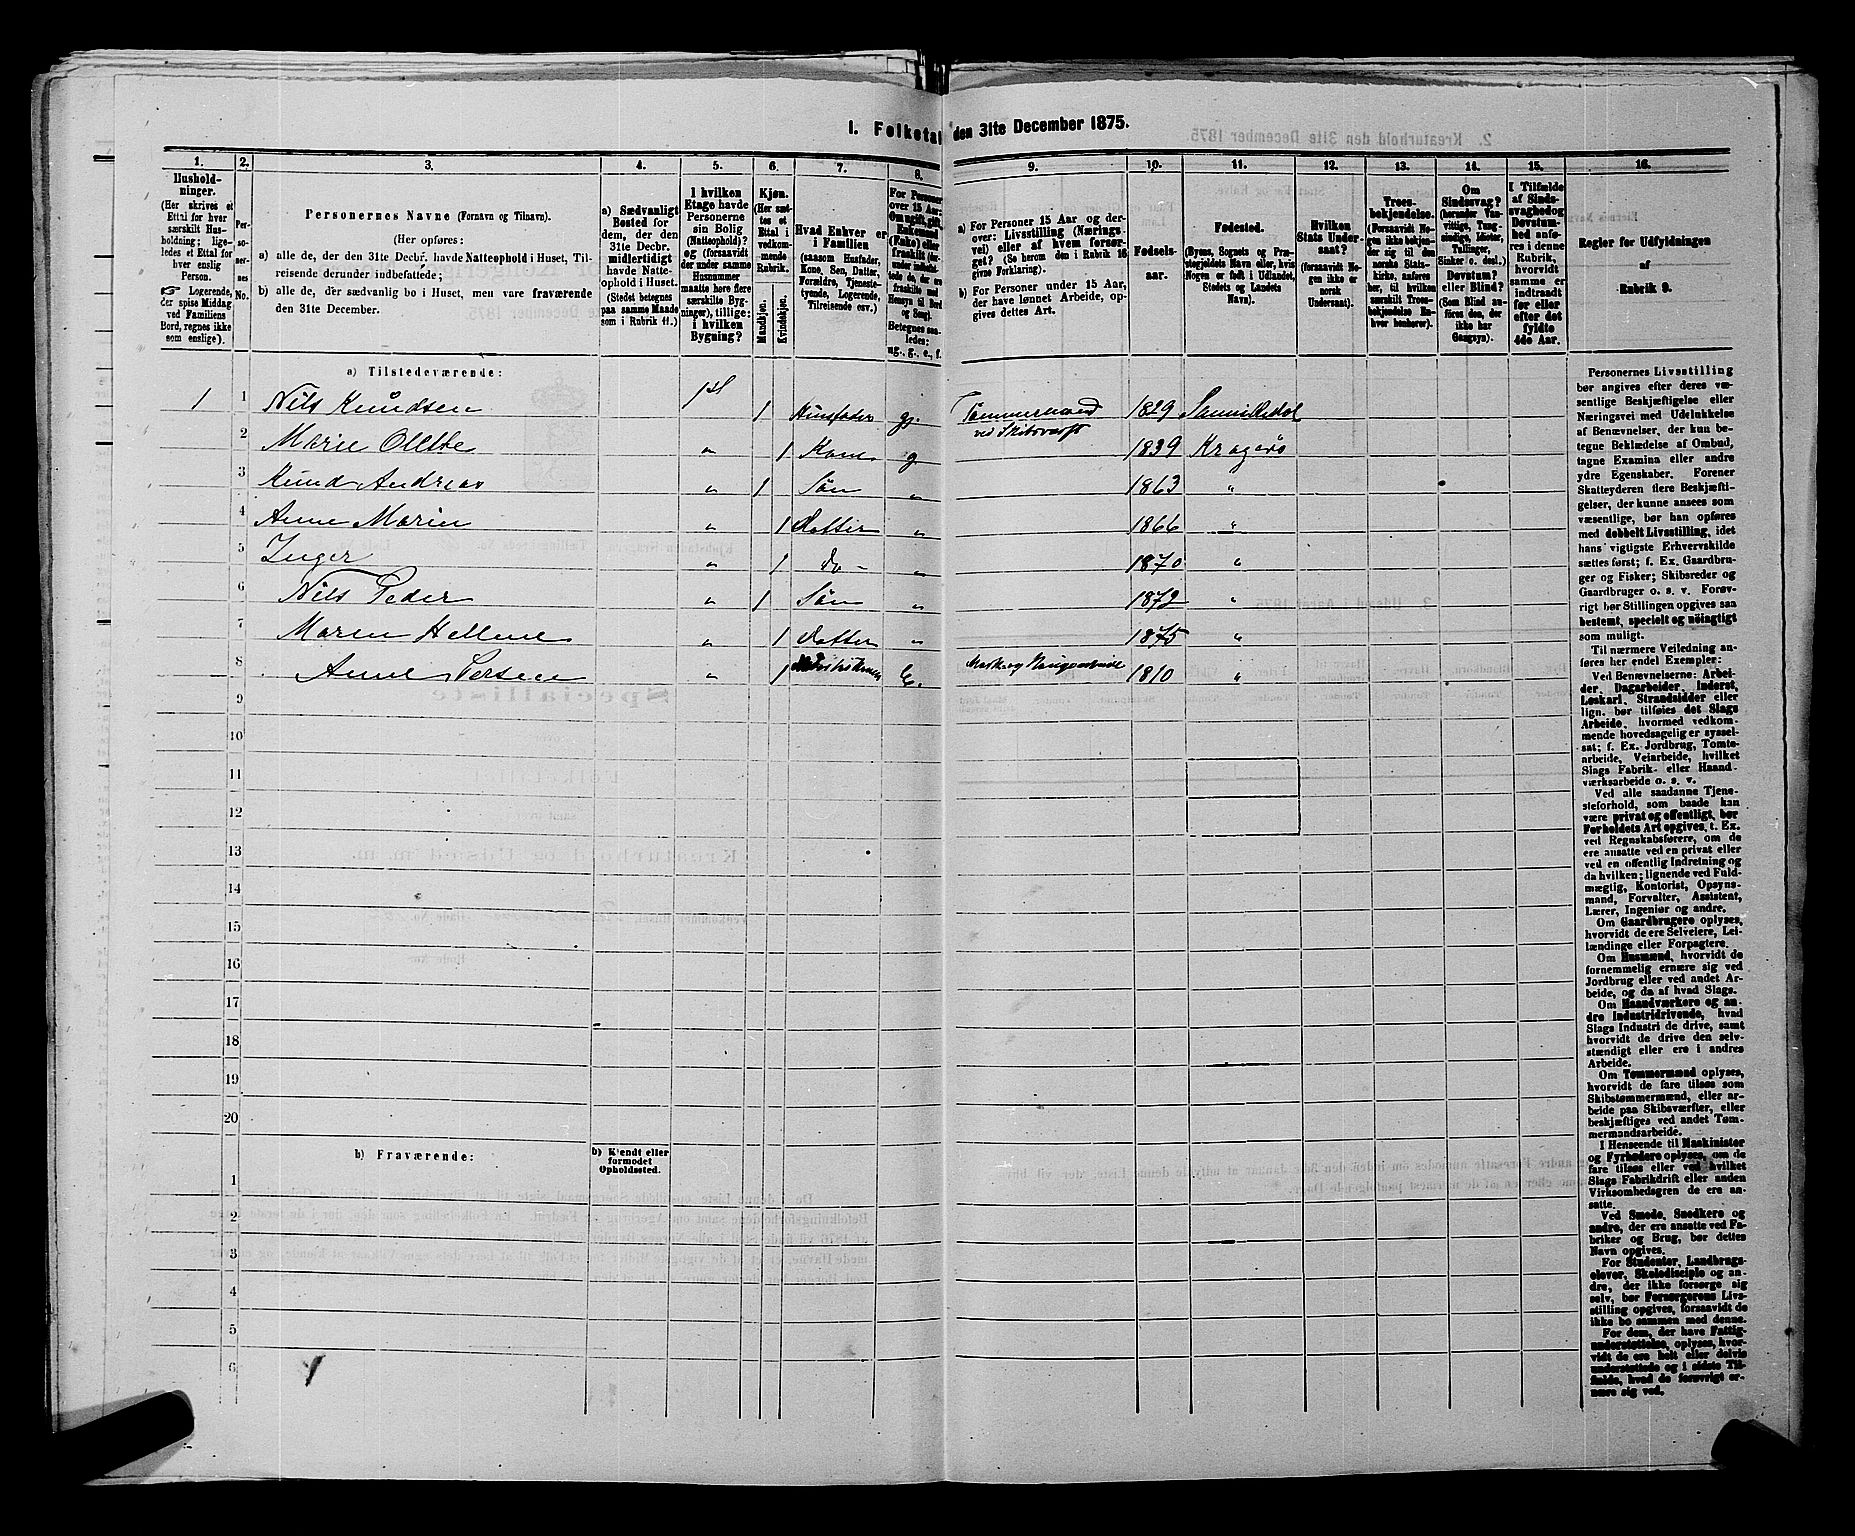 I. Folketal den 31te December 1875.
1. 2. 3. 4. 5. 6. 7. 8. 9. 10. 11. 12. 13. 14. 15. 16.
Hushold-
ninger.
(Her skrives et
Ettal for hver
særskilt Hus-
holdning; lige-
ledes et Ettal for
hver enslig
Person.
☞ Logerende,
der spise Middag
ved Familiens
Bord, regnes ikke
som enslige).
Per-
so-
ner-
nes
No.
Personernes Navne (Fornavn og Tilnavn).
(Her opføres:
a) alle de, der den 31te Decbr. havde Natteophold i Huset, Til-
reisende derunder indbefattede;
b) alle de, der sædvanlig bo i Huset, men vare fraværende
den 31te December.
a) Sædvanligt
Bosted for
dem, der den
31te Decbr.
midlertidigt
havde Natte-
ophold i Huset.
(Stedet betegnes
paa samme Maade
som i Rubrik 11.)
I hvilken
Etage havde
Personerne
sin Bolig
(Natteophold)?
og (forsaavidt
der under samme
Husnummer
maatte høre flere
særskilte Byg-
ninger), tillige:
i hvilken
Bygning?
Kjøn.
(Her sæt-
tes et
Ettal i
vedkom-
mende
Rubrik.
Mandkjøn.
Kvindekjøn.
Hvad Enhver er
i Familien
(saasom Husfader,
Kone, Søn, Datter,
Forældre, Tjeneste-
tyende, Logerende,
Tilreisende osv.)
For Personer
over 15 Aar:
Om ugift, gift,
Enkemand
(Enke) eller
fraskilt
Betegnes saa-
ledes:
ug., g., e., f.
a) For Personer 15 Aar og der-
over: Livsstilling (Nærings-
vei) eller af hvem forsør-
get? (Se herom den i Rubrik 16
givne Forklaring).
b) For Personer under 15 Aar,
der have lønnet Arbeide, op-
gives dettes Art.
Fødsels-
aar.
Fødested.
(Byens, Sognets og Præ-
stegjeldets Navn eller, hvis
Nogen er født i Udlandet,
Stedets og Landets
Navn).
Hvilken
Stats Under-
saat?
(forsaavidt No-
gen ikke er
norsk
Undersaat).
Troes-
bekjendelse.
(Forsaavidt No-
gen ikke bekjen-
der sig til den
norske Stats-
kirke, anføres
her, til hvilken
særskilt Troes-
bekjendelse En-
hver henhører).
Om
Sindssvag?
(herunder Van-
vittige, Tung-
sindige, Idioter,
Tullinger,
Sinker o. desl.)
Døvstum?
eller Blind?
(Som Blind an-
føres den, der
ikke har
Gangsyn).
I Tilfælde
af Sinds-
svaghed og
Døvstum-
hed anfø-
res i denne
Rubrik,
hvorvidt
samme er
indtraadt
før eller
efter det
fyldte
4de Aar.
Regler for Udfyldningen
af
Rubrik 9.
a) Tilstedeværende:
1 1 Nils Knudsen 1st 1 Husfader g. Tømmermand 1829 Sannikedal
ved Skibsværft
2 Maren " 1 Kone g 1839 Kragerø
3 Knud Andreas " 1 Søn " 1863 "
4 Anne Maria " 1 Datter " 1866 "
5 Inger " 1 do - " 1870 "
6 Nils Peder " 1 Søn " 1872 "
7 Maren Hellene " 1 Datter " 1875 "
8 Anne " 1 e. 1810 "
9
10
11
12
13
14
15
16
17
18
19
20
b) Fraværende:
b) Kjendt eller
formodet
Opholdssted.
1
2
3
4
5
6
Personernes Livsstilling
bør angives efter deres væ-
sentlige Beskjæftigelse eller
Næringsvei med Udelukkelse
af Benævnelser, der kun be-
tegne Beklædelse af Ombud,
tagne Examina eller andre
ydre Egenskaber. Forener
Skatteyderen flere Beskjæfti-
gelser, der kunne ansees som
væsentlige, bør han opføres
med dobbelt Livsstilling, idet
hans vigtigste Erhvervskilde
sættes først; f. Ex. Gaardbru-
ger og Fisker; Skibsreder og
Gaardbruger o. s. v. Forøv-
rigt bør Stillingen opgives saa
bestemt, specielt og nöiagtigt
som muligt.
Til nærmere Veiledning an-
føres her endel Exempler:
Ved Benævnelserne: Arbei-
der, Dagarbeider, Inderst,
Løskarl, Strandsidder eller
lign. bør tilføies det Slags
Arbeide, hvormed vedkom-
mende hovedsagelig er syssel-
sat; f. Ex. Jordbrug, Tomte-
arbeide, Veiarbeide, hvilket
Slags Fabrik- eller Haand-
værksarbeide o. s. v.
Ved alle saadanne Tjene-
steforhold, som baade kan
være privat og offentligt, bør
Forholdets Art opgives, t. Ex.
ved Regnskabsførere, om de
ere ansatte ved en privat eller
ved en offentlig Indretning og
da hvilken; lignende ved Fuld-
mægtig, Kontorist, Opsyns-
mand, Forvalter, Assistent,
Lærer, Ingeniør og andre.
Om Gaardbrugere oplyses,
hvorvidt de ere Selveiere, Lei-
lændinge eller Forpagtere.
Om Husmænd, hvorvidt de
fornemmelig ernære sig ved
Jordbrug eller ved andet Ar-
beide, og da af hvad Slags.
Om Haandværkere og an-
dre Industridrivende, hvad
Slags Industri de drive, samt
hvorvidt de drive den selv-
stændigt eller ere i andres
Arbeide.
Om Tømmermænd oplyses,
hvorvidt de fare tilsøs som
Skibstømmermænd, eller ar-
beide paa Skibsværfter, eller
beskjæftiges ved andet Tøm-
mermandsarbeide.
I Henseende til Maskinister
og Fyrbødere oplyses, om de
fare tilsøs eller ved hvilket
Slags Fabrikdrift eller anden
Virksomhedsgren de ere an-
satte.
Ved Smede, Snedkere og
andre, der ere ansatte ved Fa-
briker og Brug, bør dettes
Navn opgives.
For Studenter, Landbrugs-
elever, Skoledisciple og an-
dre, der ikke forsørge sig
selv, bør Forsørgerens Livs-
stilling opgives, forsaavidt de
ikke bo sammen med denne.
For dem, der have Fattig-
understøttelse, oplyses, hvor-
vidt de ere helt eller delvis
understøttede og i sidste Til-
fælde, hvad de forøvrigt er-
nære sig ved.